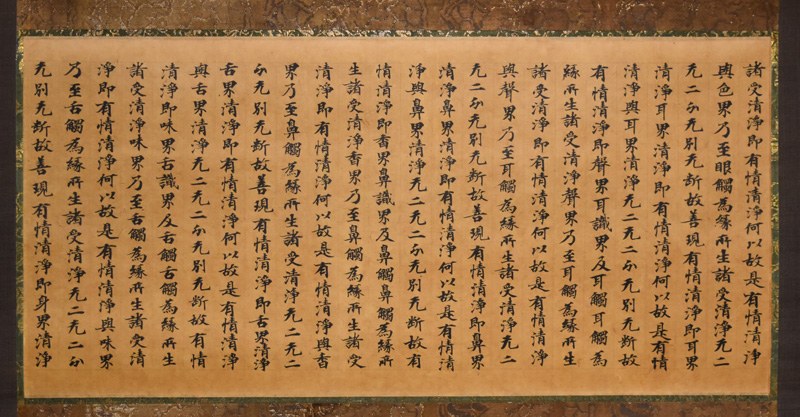 諸受清淨即有情清淨何以故是有情清淨
與色界乃至眼觸為緣所生諸受清淨无二
无二分无別无斷故善現有情清淨即耳界
清淨耳界清淨即有情清淨何以故是有情
清淨與耳界清淨无二无二分无別无斷故
有情清淨即聲界耳識界及耳觸耳觸為
緣所生諸受清淨聲界乃至耳觸為緣所生
諸受清淨即有情清淨何以故是有情清淨
與聲界乃至耳觸為緣所生諸受清淨无二
无二分无別无斷故善現有情清淨即鼻界
清淨鼻界清淨即有情清淨何以故是有情清
淨與鼻界清淨无二无二分无別无斷故有
情清淨即香界鼻識界及鼻觸鼻觸為緣所
生諸受清淨香界乃至鼻觸為緣所生諸受
清淨即有情清淨何以故是有情清淨與香
界乃至鼻觸為緣所生諸受清淨无二无二
分无別无斷故善現有情清淨即舌界清淨
舌界清淨即有情清淨何以故是有情清淨
與舌界清淨无二无二分无別无斷故有情
清淨即味界舌識界及舌觸舌觸為緣所生
諸受清淨味界乃至舌觸為緣所生諸受清
淨即有情清淨何以故是有情清淨與味界
乃至舌觸為緣所生諸受清淨无二无二分
无別无斷故善現有情清淨即身界清淨